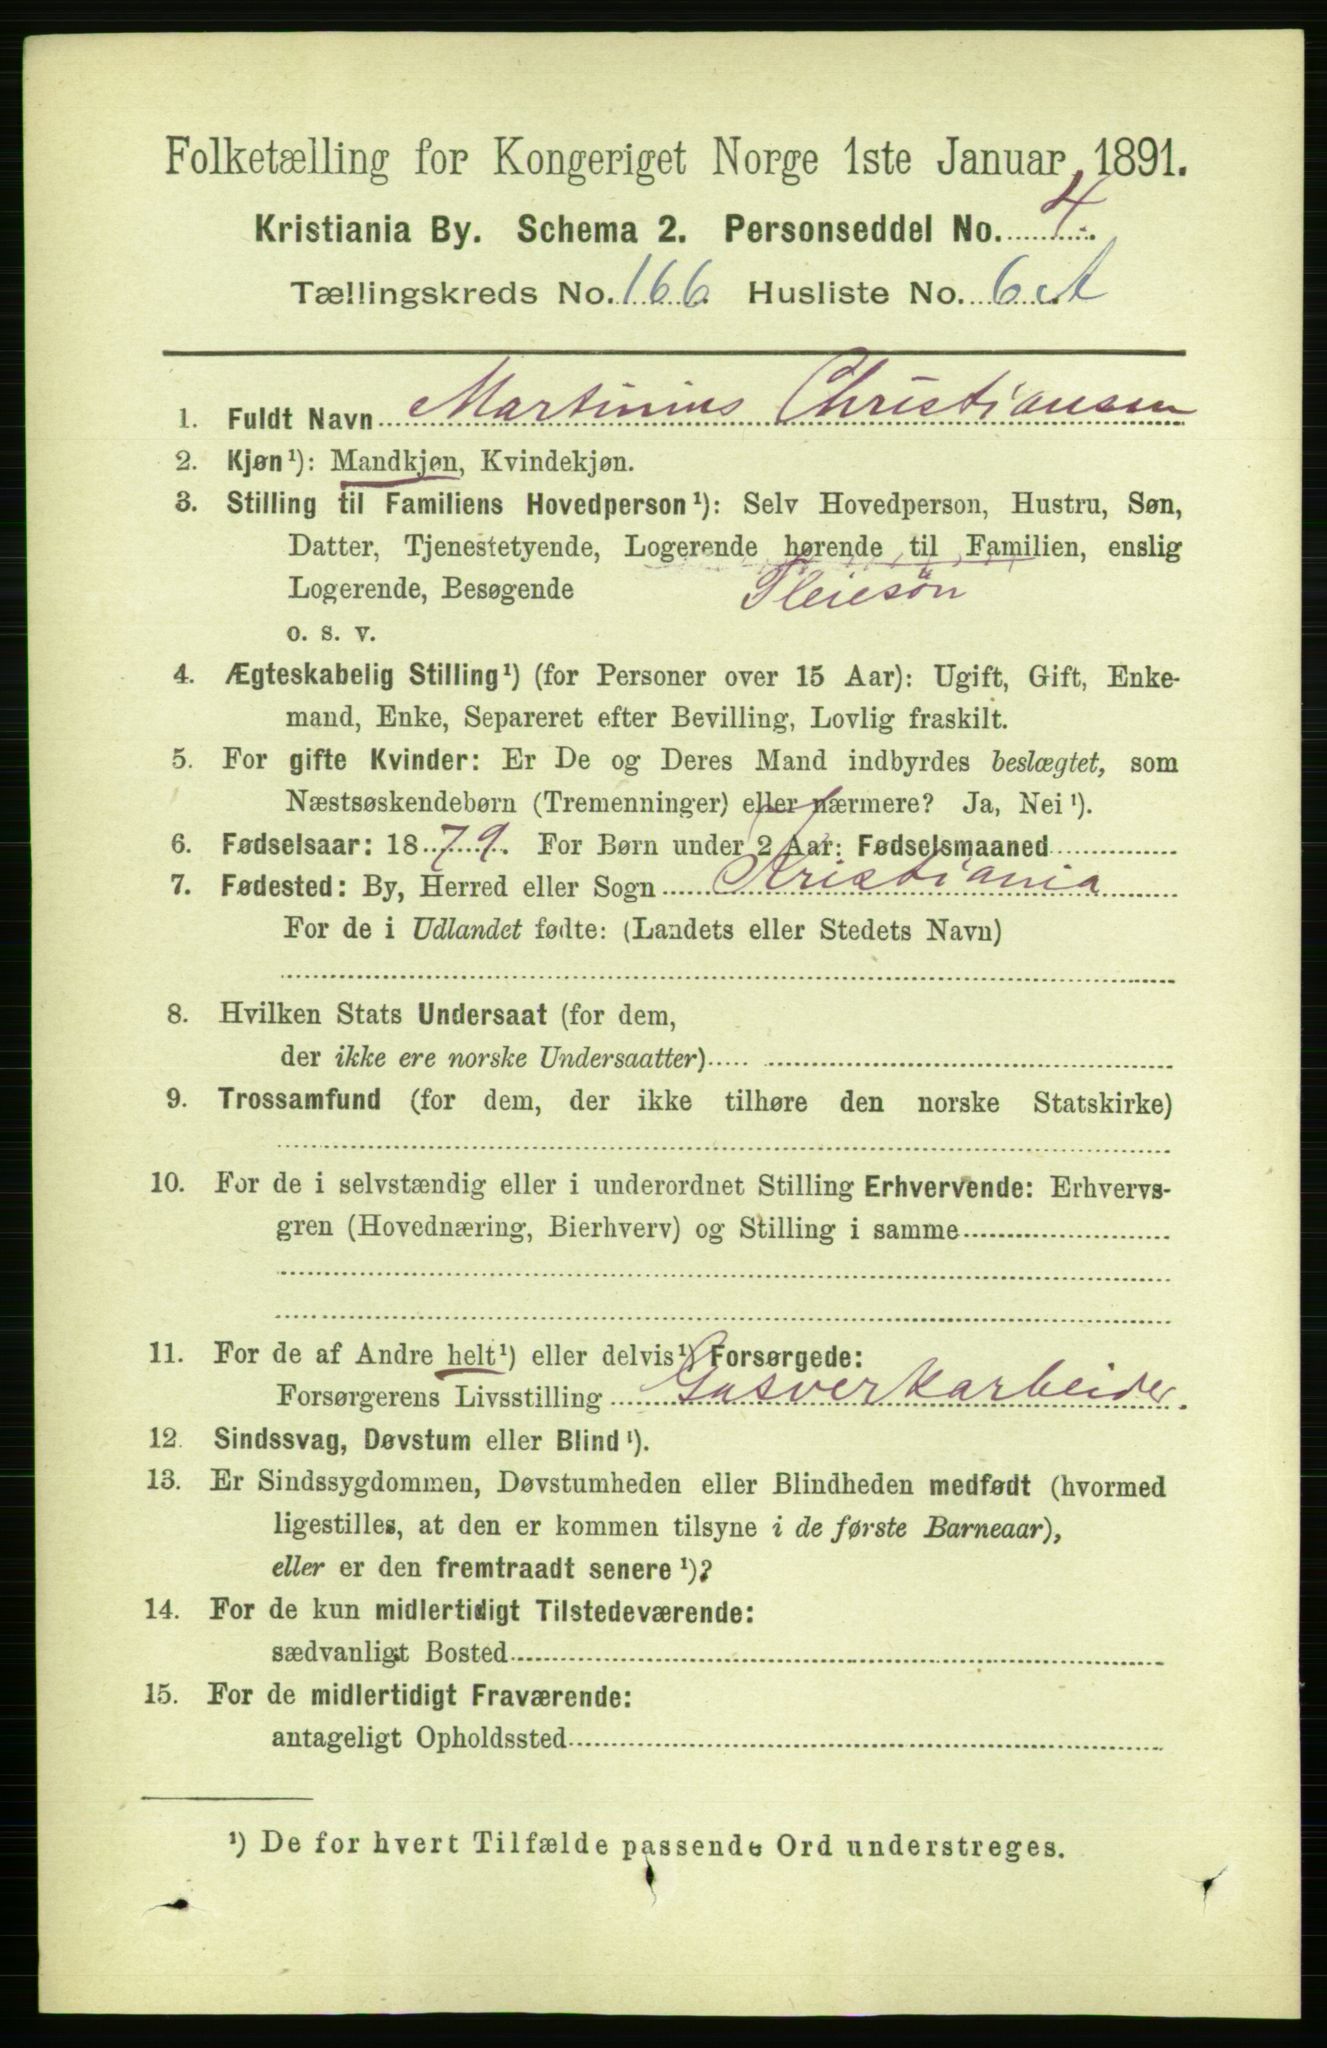 Folketælling for Kongeriget Norge 1ste Januar 1891.
Kristiania By. Schema 2. Personseddel No. 4.
Tællingskreds No. 166 Husliste No. 6 A
1. Fuldt Navn Martinius Christiansen
2. Kjøn¹): Mandkjøn, Kvindekjøn.
3. Stilling til Familiens Hovedperson¹): Selv Hovedperson, Hustru, Søn,
Datter, Tjenestetyende, Logerende hørende til Familien, enslig
Logerende, Besøgende Pleiesön
o. s. v.
4. Ægteskabelig Stilling¹) (for Personer over 15 Aar): Ugift, Gift, Enke-
mand, Enke, Separeret efter Bevilling, Lovlig fraskilt.
5. For gifte Kvinder: Er De og Deres Mand indbyrdes beslægtet, som
Næstsøskendebørn (Tremenninger) eller nærmere? Ja, Nei¹).
6. Fødselsaar: 1879. For Børn under 2 Aar: Fødselsmaaned
7. Fødested: By, Herred eller Sogn Kristiania
For de i Udlandet fødte: (Landets eller Stedets Navn)
8. Hvilken Stats Undersaat (for dem,
der ikke ere norske Undersaatter)
9. Trossamfund (for dem, der ikke tilhøre den norske Statskirke)
10. For de i selvstændig eller i underordnet Stilling Erhvervende: Erhvervs-
gren (Hovednæring, Bierhverv) og Stilling i samme
11. For de af Andre helt¹) eller delvis¹) Forsørgede:
Forsørgerens Livsstilling Gasverkarbeider.
12. Sindssvag, Døvstum eller Blind¹).
13. Er Sindssygdommen, Døvstumheden eller Blindheden medfødt (hvormed
ligestilles, at den er kommen tilsyne i de første Barneaar),
eller er den fremtraadt senere¹)?
14. For de kun midlertidigt Tilstedeværende:
sædvanligt Bosted
15. For de midlertidigt Fraværende:
antageligt Opholdssted
¹) De for hvert Tilfælde passende Ord understreges.